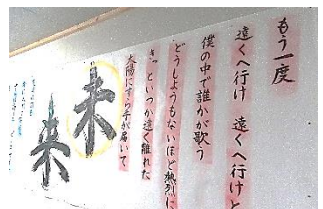 もう一度
遠くへ行け 遠くへ行けと
僕の中で誰かが歌う
どうしようもないほど熱烈に
きっといつか遠く離れた
太陽にすら手が届いて
未来